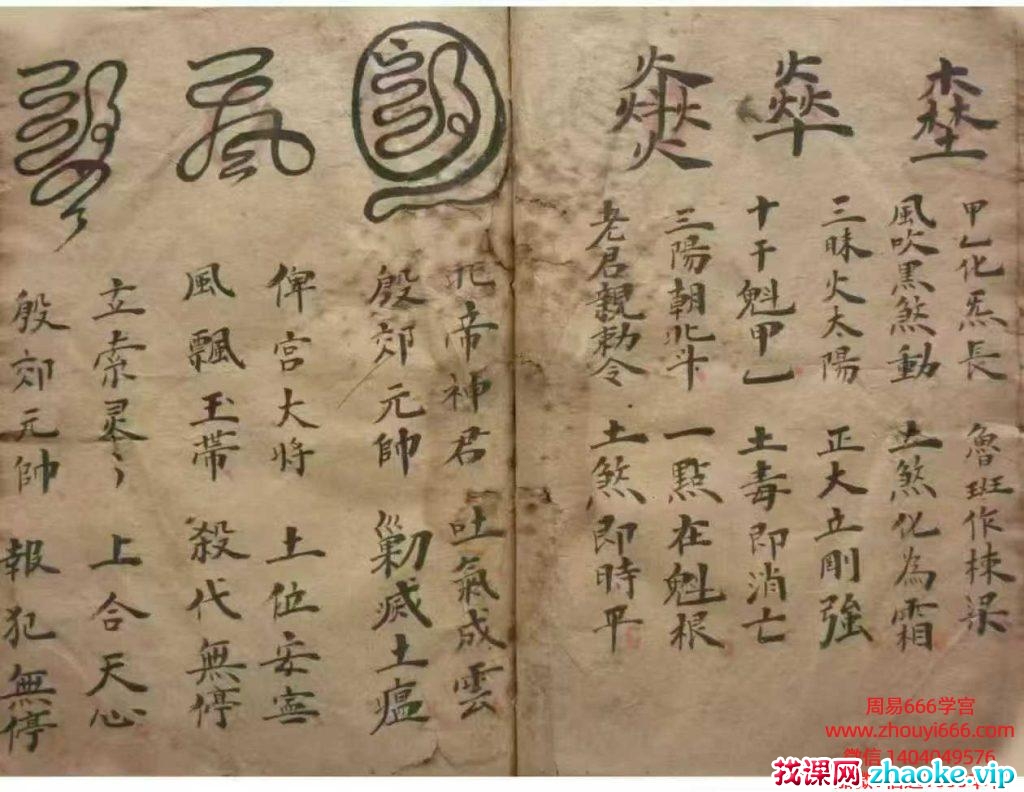 甲乙化炁長 魯班作棟梁
風吹黑煞動 土煞化為霜
三昧火太陽 正大立剛強
十干魁甲乙 土毒即消亡
三陽朝北斗 一點在魁根
老君親勅令 土煞即時平
北帝神君 吐氣成雲
殷郊元帥 勦滅土瘟
俾宮大将 土位安寧
風飄玉帶 殺代無停
立索灵々 上合天心
殷郊元帥 報犯無停
周易666学宫
www.zhouyi666.com
微信1404049576
找课网zhaoke.vip